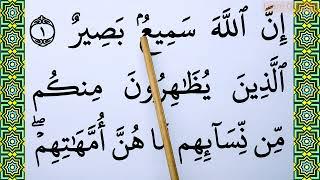 إِنَّ ٱللَّهَ سَمِيعُۢ بَصِيرٌ ١
ٱلَّذِينَ يُظَٰهِرُونَ مِنكُم
مِّن نِّسَآئِهِم مَّا هُنَّ أُمَّهَٰتِهِمْۖ